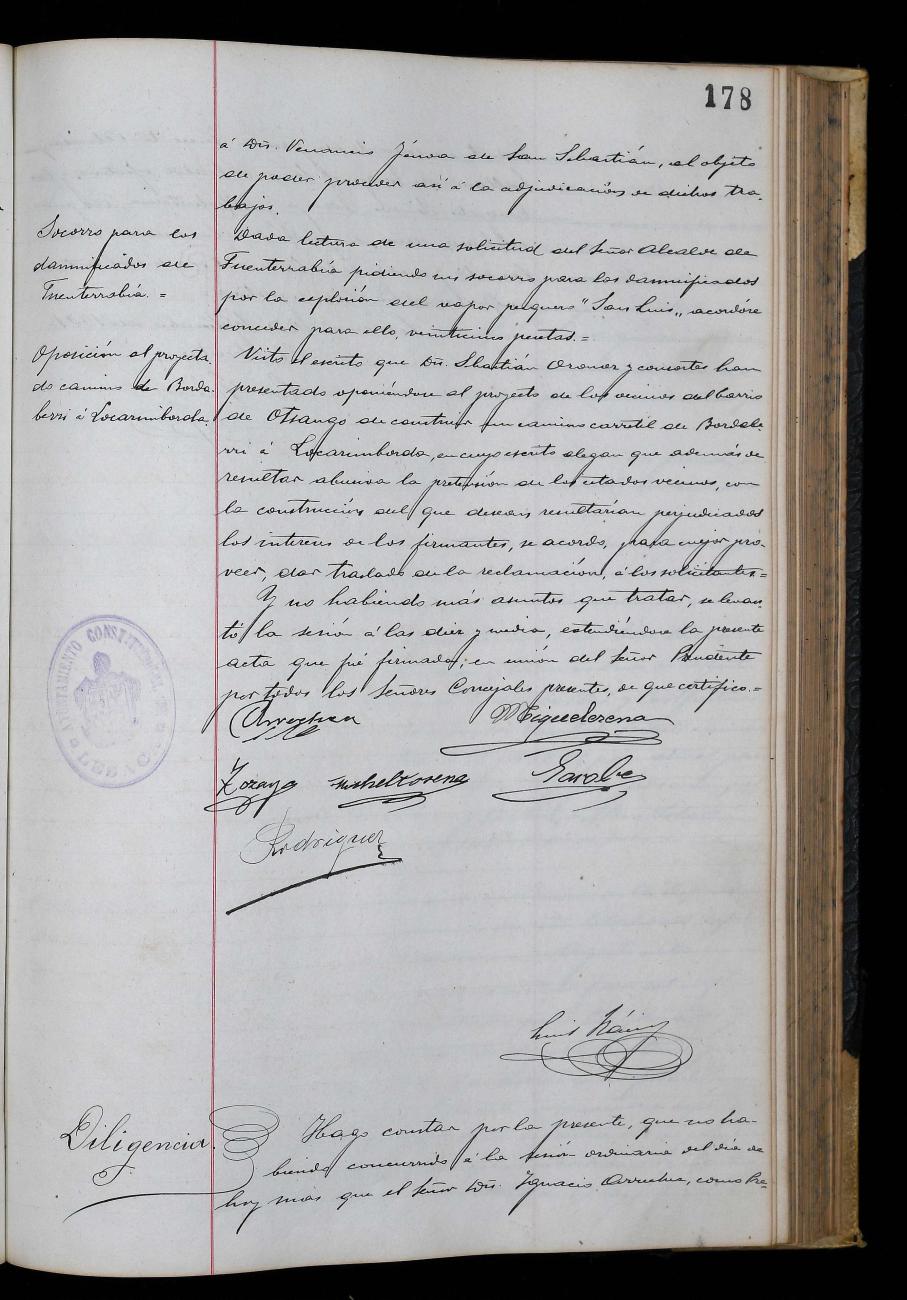 178
á Dn. Venancio de San Sebastián, al objeto
de poder proceder así á la adjudicación de dichos tra-
bajos.
Socorro para los
damnificados de
Fuenterrabía. =
Dada lectura de una solicitud del Señor Alcalde de
Fuenterrabía pidiendo un socorro para los damnificados
por la explosión del vapor pesquero "San Luis", acordóse
conceder para ello, veinticinco pesetas. =
Oposición al proyecto
de camino de Borda-
berri á Locarimborda.
Visto el escrito que Dn. Sebastián y consortes han
presentado oponiéndose al proyecto de los vecinos del barrio
de Otsango de construir un camino carretil de Bordabe-
rri á Locarimborda, en cuyo escrito alegan que además de
resultar abusiva la pretensión de los citados vecinos, con
la construcción del que desean resultarían perjudicados
los intereses de los firmantes, se acordó, para mejor pro-
veer, dar traslado de la reclamación, á los solicitantes =
Y no habiendo más asuntos que tratar, se levan-
tó la sesión á las diez y media, extendiéndose la presente
acta que fué firmada, en unión del Señor Presidente
por todos los Señores Concejales presentes, de que certifico. =
AYUNTAMIENTO CONSTITUCIONAL DE
LESACA
Miguelorena
Zozaya
Rodriguez
Luis
Diligencia.
Hago constar por la presente, que no ha-
biendo concurrido á la sesión ordinaria del día de
hoy más que el señor Dn. Ignacio, como Pre-